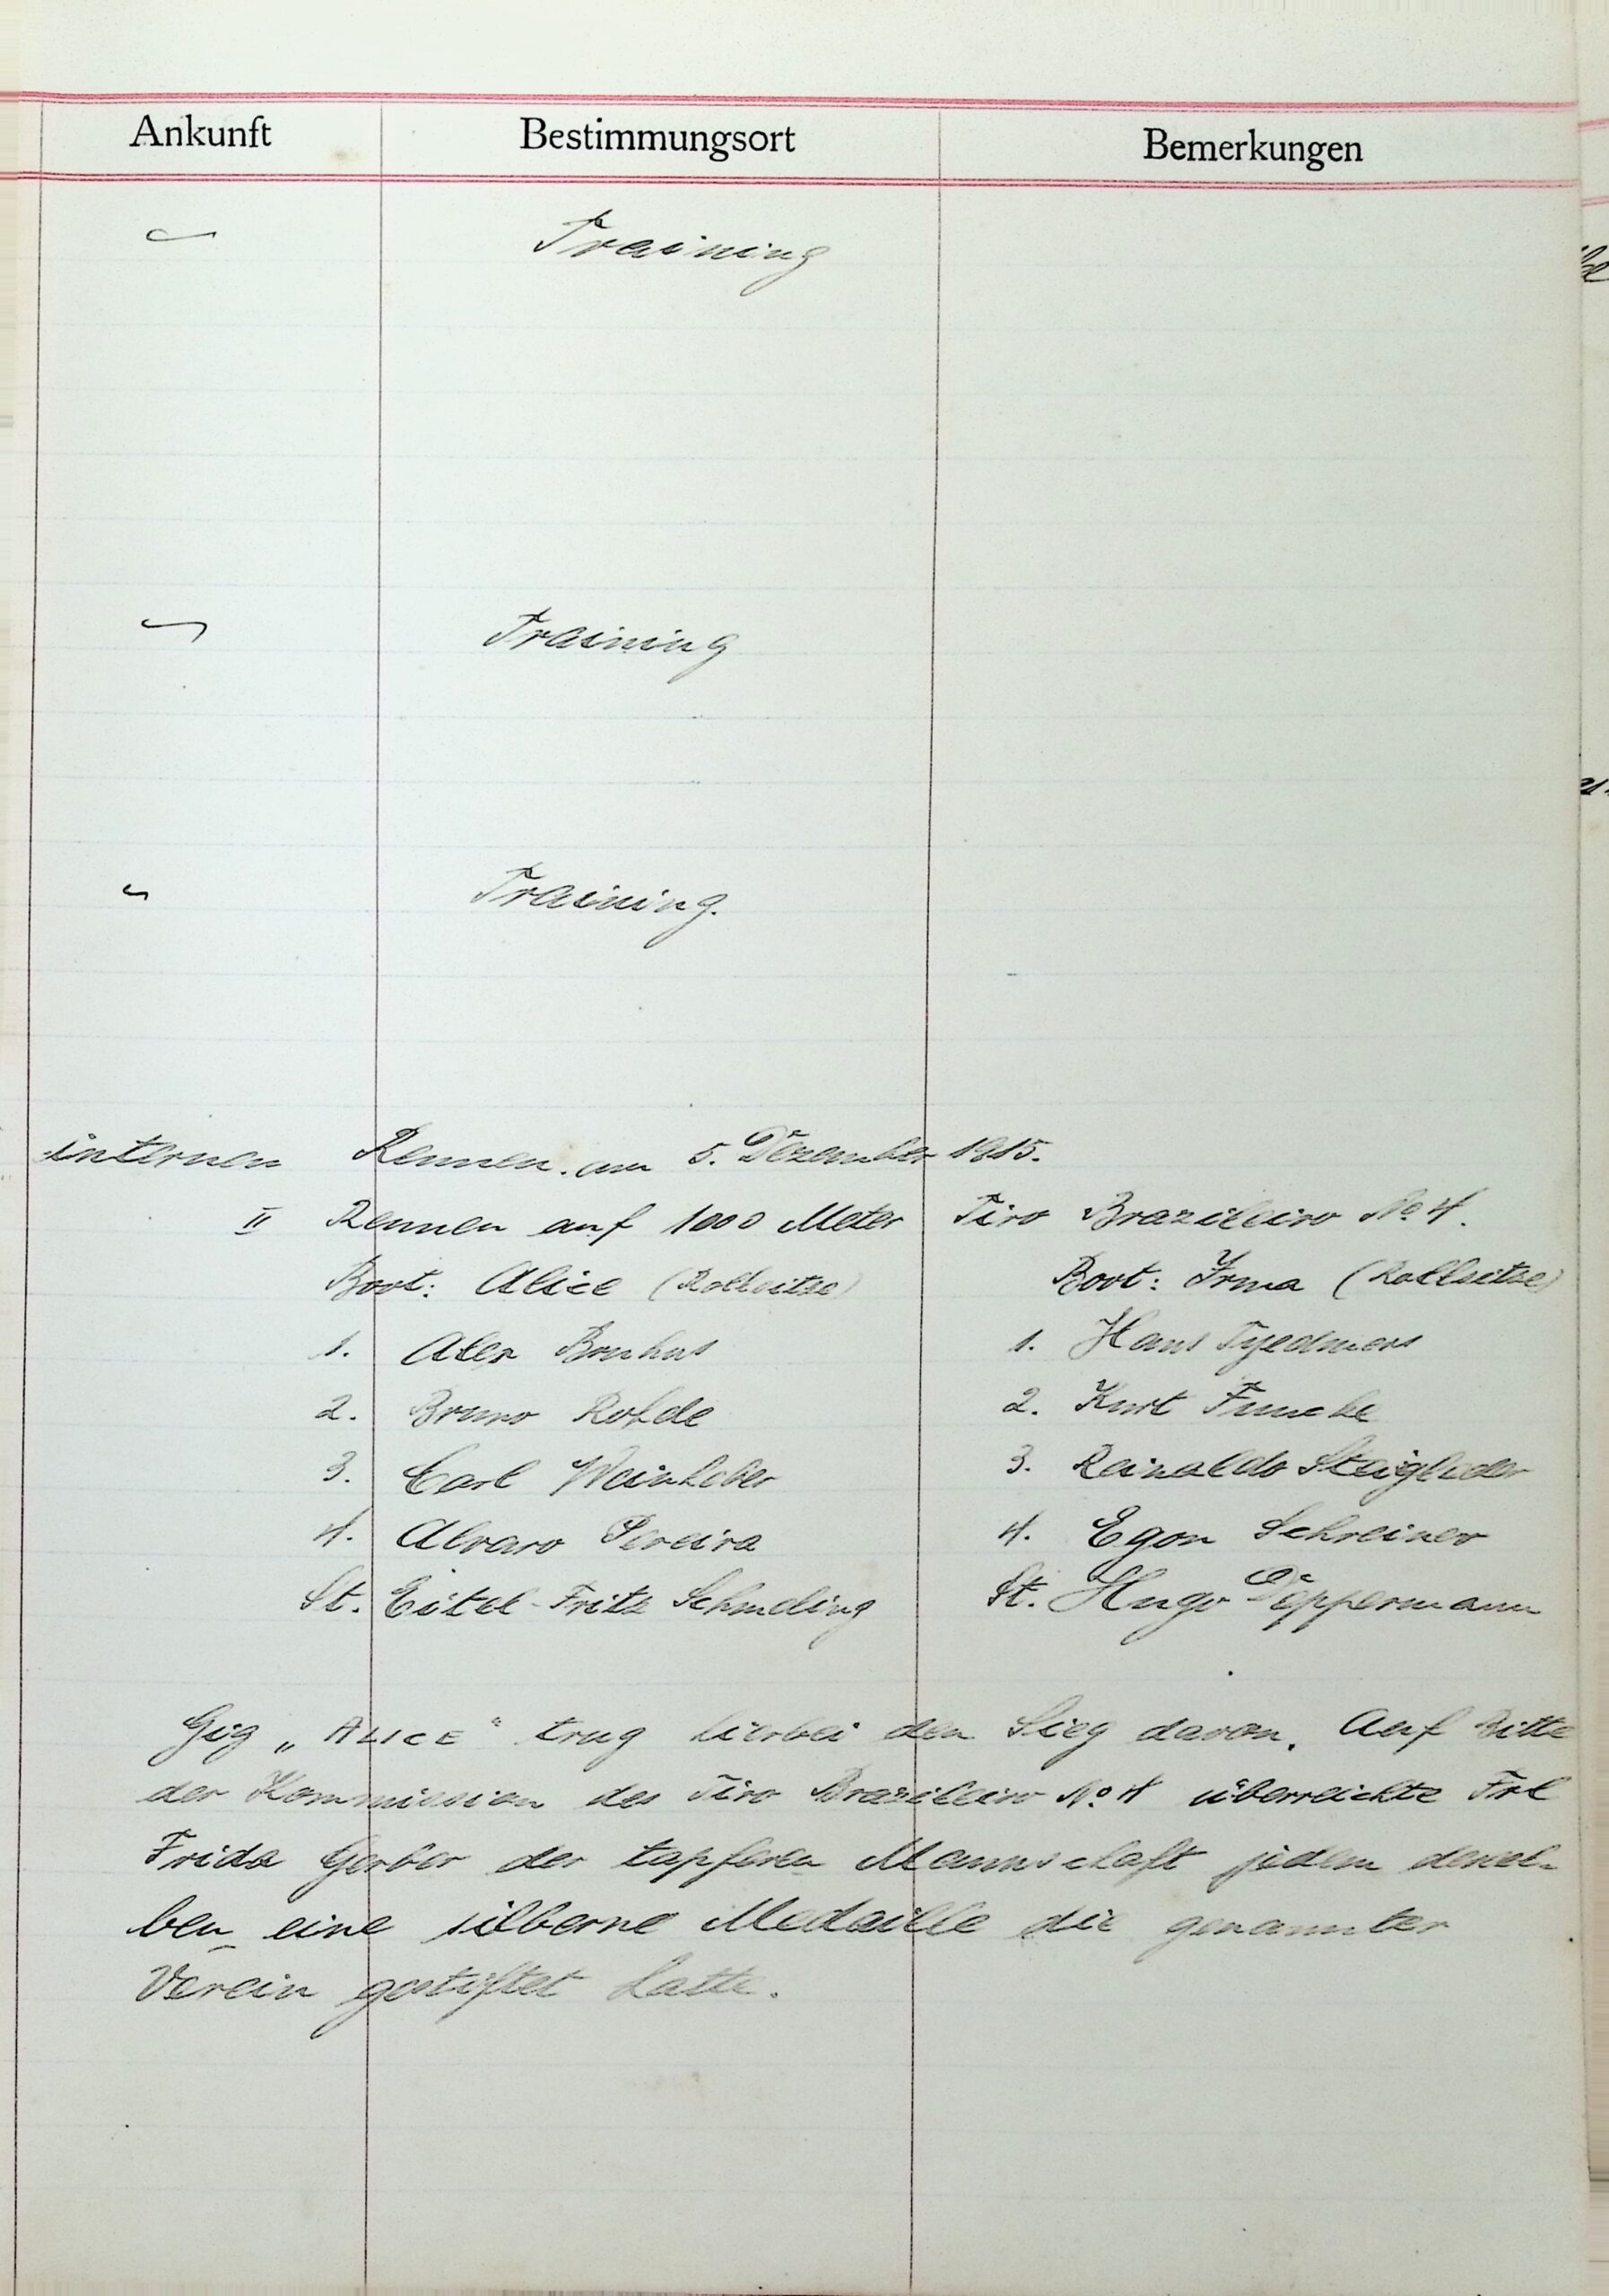 Ankunft Bestimmungsort Bemerkungen
Training
Training
Training.
internen Rennen. am 5. Dezember 1915.
II Rennen auf 1000 Meter Tiro Brazileiro No 4.
Boot: Alice (Rollsitze) Boot: Irma (Rollsitze)
1. Alex Bruhns 1. Hans Tyedmers
2. Bruno Rohde 2. Kurt Funcke
3. Carl Weinheber 3. Reinaldo Steigleder
4. Alvaro Pereira 4. Egon Schreiner
St. Eitel-Fritz Schmeling St. Hugo Deppermann
Gig „ALICE“ trug hierbei den Sieg davon. Auf Bitte
der Kommission des Tiro Brazileiro No 4 überreichte Frl
Frida Gerbor der tapferen Mannschaft jedem dersel-
ben eine silberne Medaille die genannter
Verein gestiftet hatte.